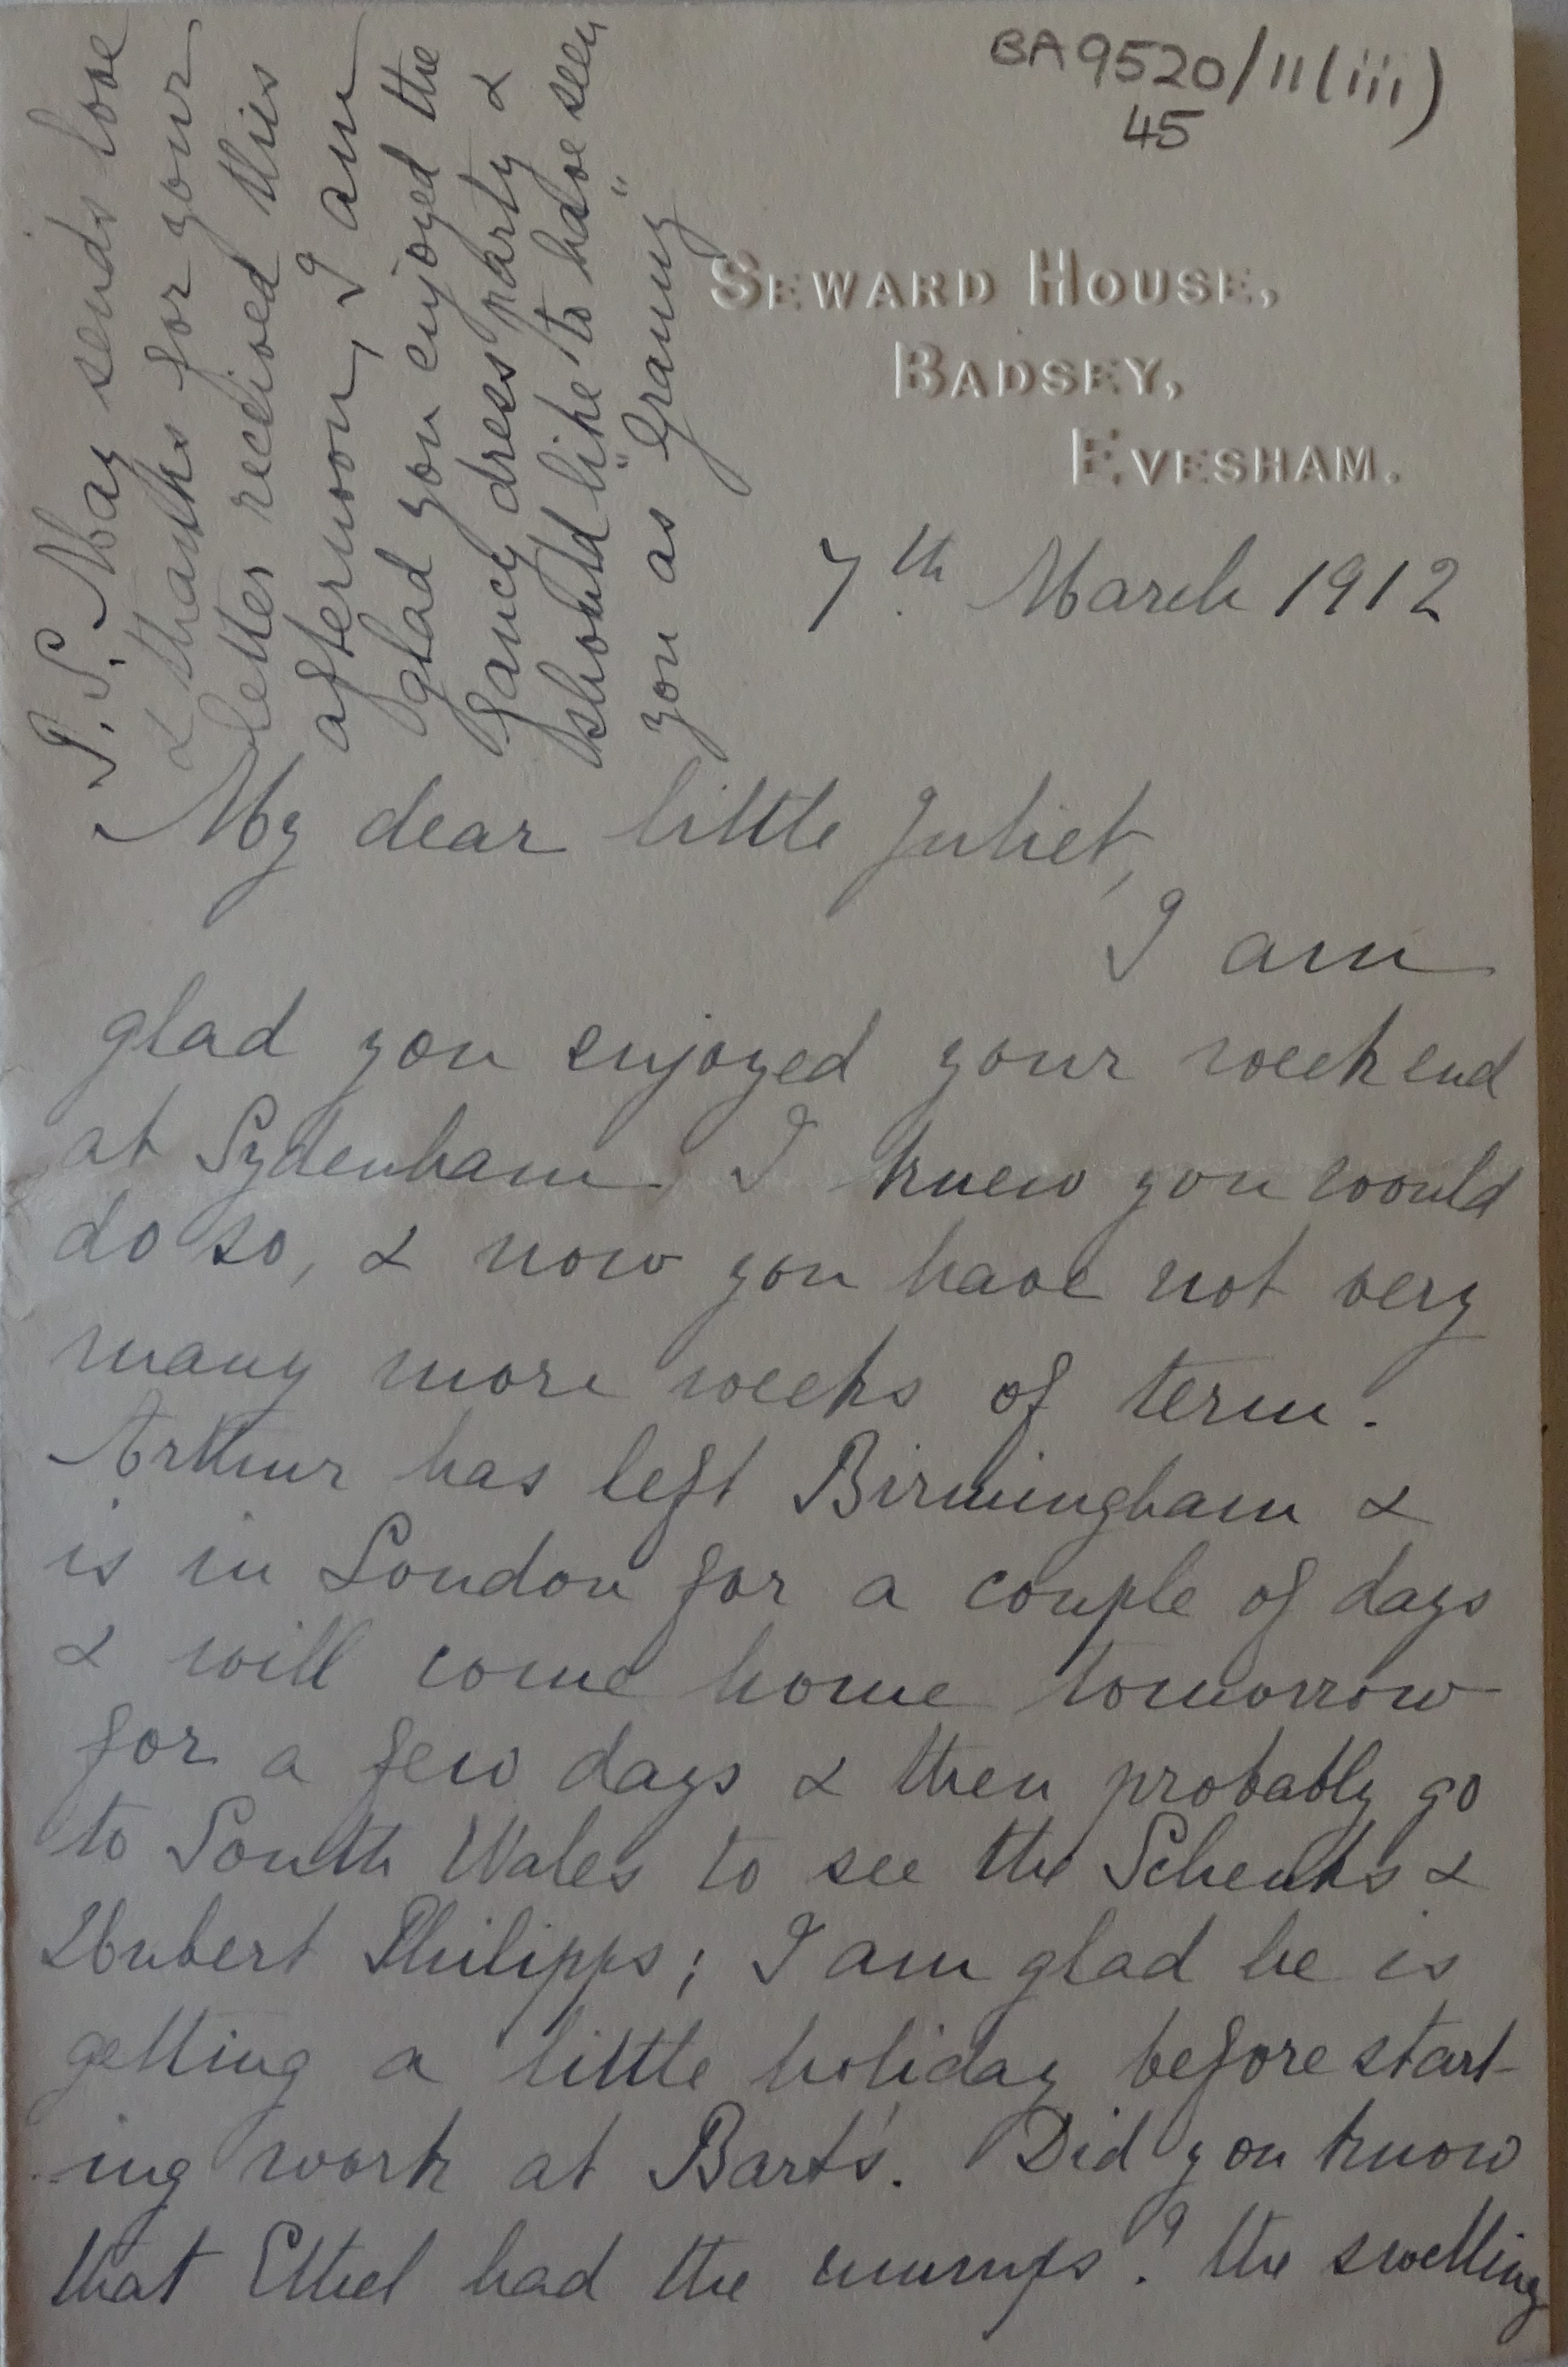 BA9520/11(iii)
45
SEWARD HOUSE,
BADSEY,
EVESHAM.
7th March 1912
My dear little Juliet,
I am
glad you enjoyed your week end
at Sydenham. I knew you would
do so, & now you have not very
many more weeks of term.
Arthur has left Birmingham &
is in London for a couple of days
& will come home tomorrow
for a few days & then probably go
to South Wales to see the Schenks &
Hubert Philipps; I am glad he is
getting a little holiday before start-
ing work at Bart's. Did you know
that Ethel had the mumps? the swelling
P.S. May sends love
& thanks for your
letter received this
afternoon, I am
glad you enjoyed the
fancy dress party &
should like to have seen
you as "Granny"